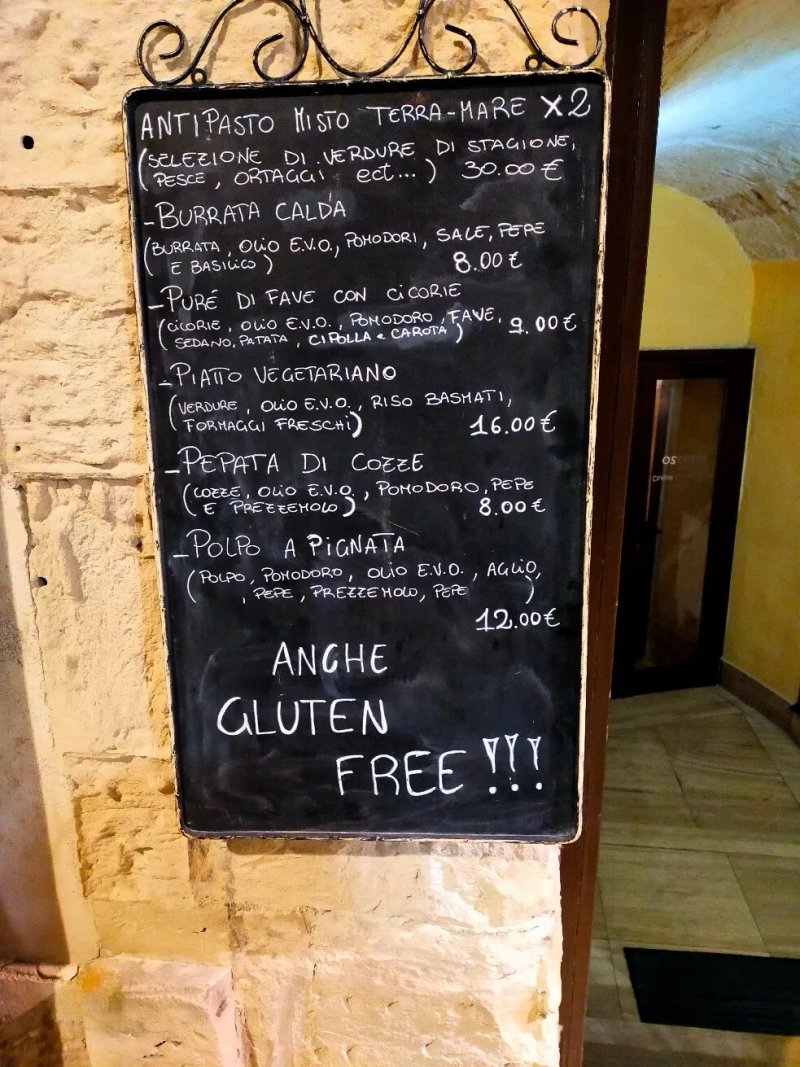 ANTIPASTO MISTO TERRA-MARE X2
(SELEZIONE DI VERDURE DI STAGIONE,
PESCE, ORTAGGI ect...) 30.00 €
-BURRATA CALDA
(BURRATA, OLIO E.V.O., POMODORI, SALE, PEPE
E BASILICO) 8.00 €
-PURÉ DI FAVE CON CICORIE
(CICORIE, OLIO E.V.O., POMODORO, FAVE,
SEDANO, PATATA, CIPOLLA e CAROTA) 9.00 €
-PIATTO VEGETARIANO
(VERDURE, OLIO E.V.O., RISO BASMATI,
FORMAGGI FRESCHI) 16.00 €
-PEPATA DI COZZE
(COZZE, OLIO E.V.O., POMODORO, PEPE
E PREZZEMOLO) 8.00 €
-POLPO A PIGNATA
(POLPO, POMODORO, OLIO E.V.O., AGLIO,
, PEPE, PREZZEMOLO, PEPE )
12.00 €
ANCHE
GLUTEN
FREE !!!